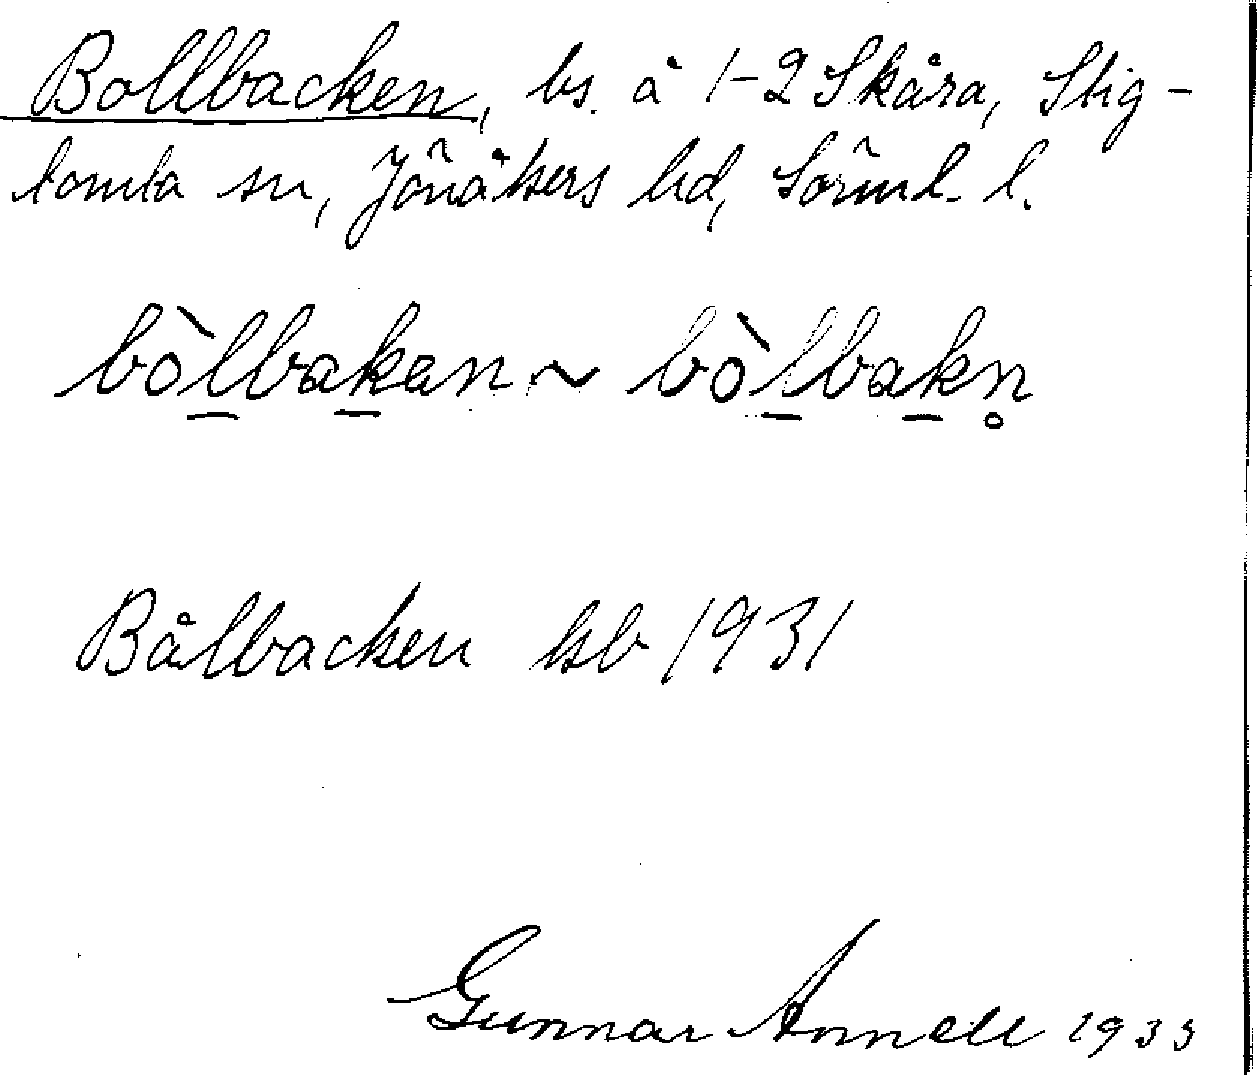 Bollbacken, bs. å 1-2 Skåra, Stig-
tomta sn, Jönåkers hd, Sörml. l.
bòl̲bak̲an ~ bòl̲bak̲n̥
Bålbacken kb 1931
Gunnar Annell 1933